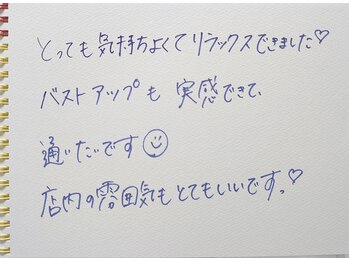 とっても気持ちよくてリラックスできました♡
バストアップも実感できて、
通いたいです☺
店内の雰囲気もとてもいいです。♡